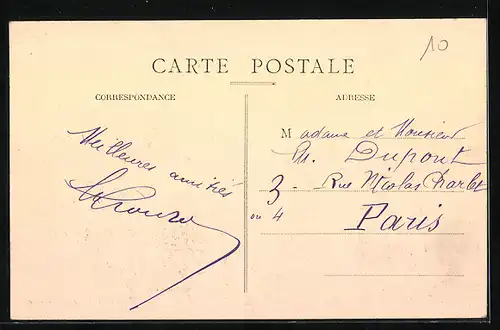 10
CARTE POSTALE
CORRESPONDANCE
ADRESSE
Meilleures amitiés
Madame et Monsieur
Dupont
3 - Rue Nicolas Charlet
ou 4
Paris